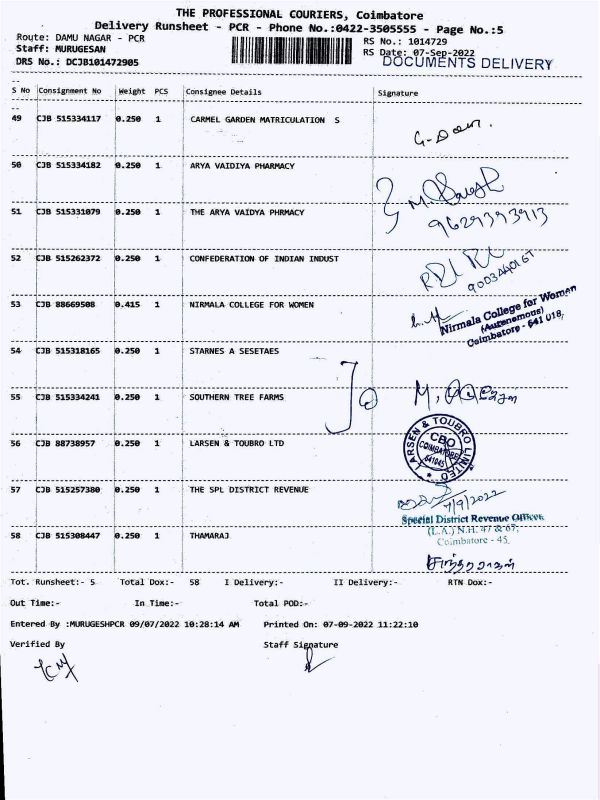 THE PROFESSIONAL COURIERS, Coimbatore
Delivery Runsheet - PCR - Phone No.:0422-3505555 - Page No.:5
Route: DAMU NAGAR - PCR
RS No.: 1014729
Staff: MURUGESAN
RS Date: 07-Sep-2022
DRS No.: DCJB101472905
DOCUMENTS DELIVERY
S No Consignment No Weight PCS Consignee Details Signature
49 CJB 515334117 0.250 1 CARMEL GARDEN MATRICULATION S
50 CJB 515334182 0.250 1 ARYA VAIDIYA PHARMACY
51 CJB 515331079 0.250 1 THE ARYA VAIDYA PHRMACY
9629393913
52 CJB 515262372 0.250 1 CONFEDERATION OF INDIAN INDUST
53 CJB 88669508 0.415 1 NIRMALA COLLEGE FOR WOMEN
Nirmala College for Women
(Autonomous)
Coimbatore - 641 018,
54 CJB 515318165 0.250 1 STARNES A SESETAES
55 CJB 515334241 0.250 1 SOUTHERN TREE FARMS
56 CJB 88738957 0.250 1 LARSEN & TOUBRO LTD
LARSEN & TOUBRO LIMITED
CBO
COIMBATORE
641045
57 CJB 515257380 0.250 1 THE SPL DISTRICT REVENUE
7/9/2022
Special District Revenue Officer
(L.A.) N.H. 47 & 67,
Coimbatore - 45.
58 CJB 515308447 0.250 1 THAMARAJ
Tot. Runsheet:- 5 Total Dox:- 58 I Delivery:- II Delivery:- RTN Dox:-
Out Time:- In Time:- Total POD:-
Entered By :MURUGESHPCR 09/07/2022 10:28:14 AM Printed On: 07-09-2022 11:22:10
Verified By Staff Signature